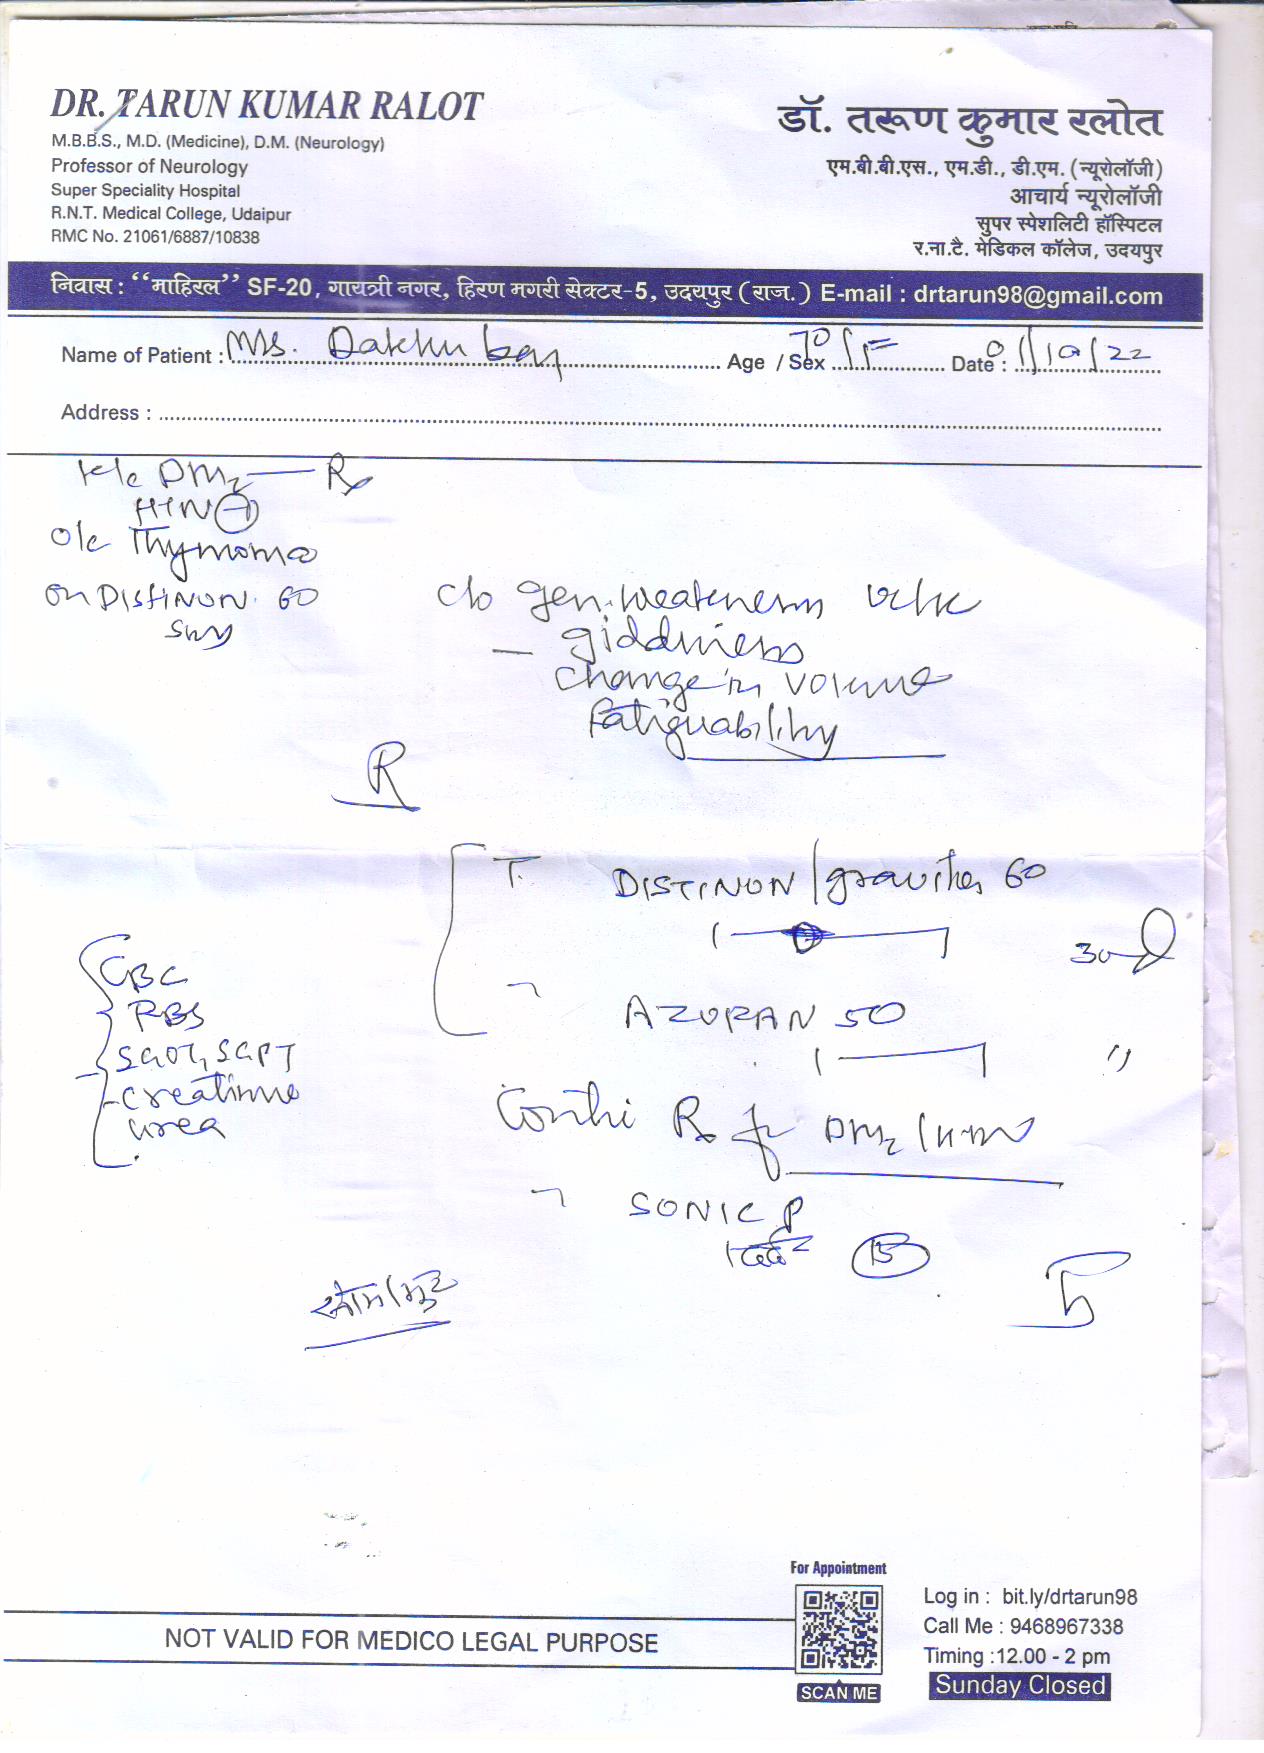 DR. TARUN KUMAR RALOT
M.B.B.S., M.D. (Medicine), D.M. (Neurology)
Professor of Neurology
Super Speciality Hospital
R.N.T. Medical College, Udaipur
RMC No. 21061/6887/10838
डॉ. तरूण कुमार रलोत
एम.बी.बी.एस., एम.डी., डी.एम. (न्यूरोलॉजी)
आचार्य न्यूरोलॉजी
सुपर स्पेशलिटी हॉस्पिटल
र.ना.टै. मेडिकल कॉलेज, उदयपुर
निवास : “माहिरल” SF-20, गायत्री नगर, हिरण मगरी सेक्टर-5, उदयपुर (राज.) E-mail : drtarun98@gmail.com
Name of Patient : Mrs. Dakhu bay Age / Sex 70/F Date : 01/10/22
Address :
K/c DM2 — Rx
HTN
O/c Thymoma
on DISTINON 60
c/o gen. weakness
— giddiness
change in volume
fatiguability
R
T. DISTINON / gravitor 60
1 — 1
30
CBC
RBS
SGOT, SGPT
creatinine
urea
AZORAN 50
1 — 1 "
Conti Rx for DM2 / HTN
SONIC P
15
NOT VALID FOR MEDICO LEGAL PURPOSE
For Appointment
SCAN ME
Log in : bit.ly/drtarun98
Call Me : 9468967338
Timing :12.00 - 2 pm
Sunday Closed